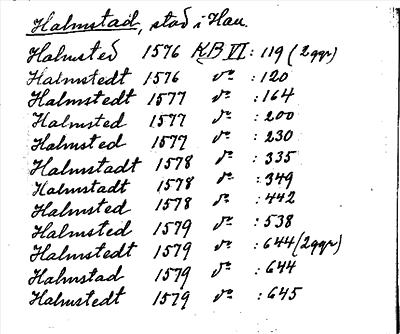 Halmstad, stad i Hall.
Halmsted 1576 KB VI : 119 (2 ggr)
Halmstedt 1576 do : 120
Halmstedt 1577 do : 164
Halmsted 1577 do : 200
Halmsted 1577 do : 230
Halmstadt 1578 do : 335
Halmstadt 1578 do : 349
Halmsted 1578 do : 442
Halmsted 1579 do : 538
Halmstedt 1579 do : 644 (2 ggr)
Halmstad 1579 do : 644
Halmstedt 1579 do : 645